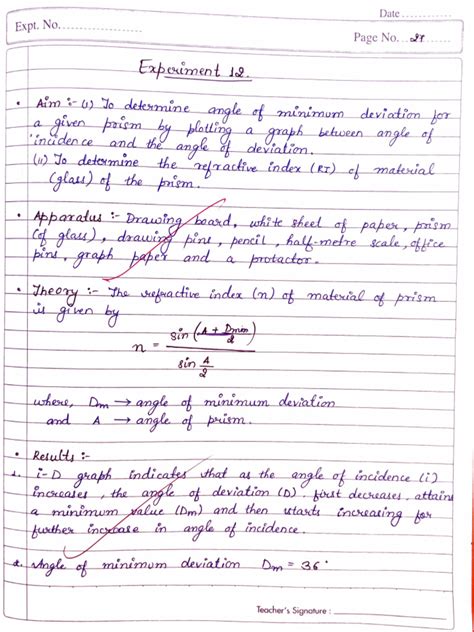 Date
Expt. No.
Page No. 27
Experiment 12.
• Aim :- (i) To determine angle of minimum deviation for
a given prism by plotting a graph between angle of
incidence and the angle of deviation.
(ii) To determine the refractive index (RI) of material
(glass) of the prism.
• Apparatus :- Drawing board, white sheet of paper, prism
(of glass), drawing pins, pencil, half-metre scale, office
pins, graph paper and a protactor.
• Theory :- The refractive index (n) of material of prism
is given by
n = sin (A + Dmin / 2) / sin A/2
where, Dm → angle of minimum deviation
and A → angle of prism.
• Results :-
1. i-D graph indicates that as the angle of incidence (i)
increases, the angle of deviation (D) first decreases, attains
a minimum value (Dm) and then starts increasing for
further increase in angle of incidence.
2. Angle of minimum deviation Dm = 36°
Teacher's Signature :